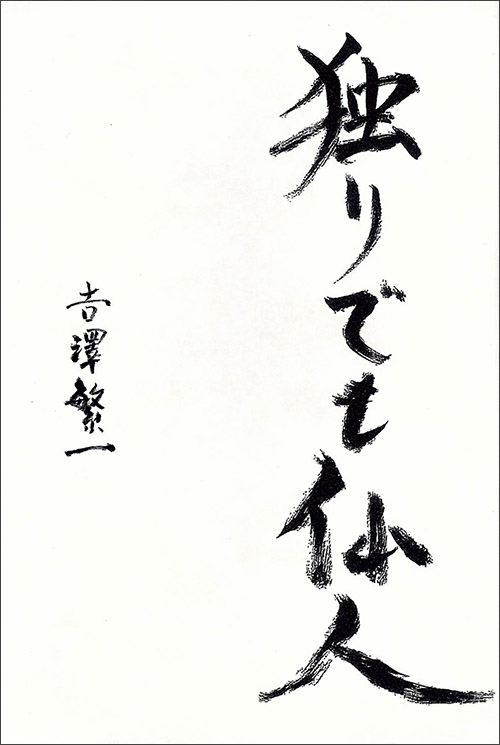 独りでも仙人
吉澤繁一